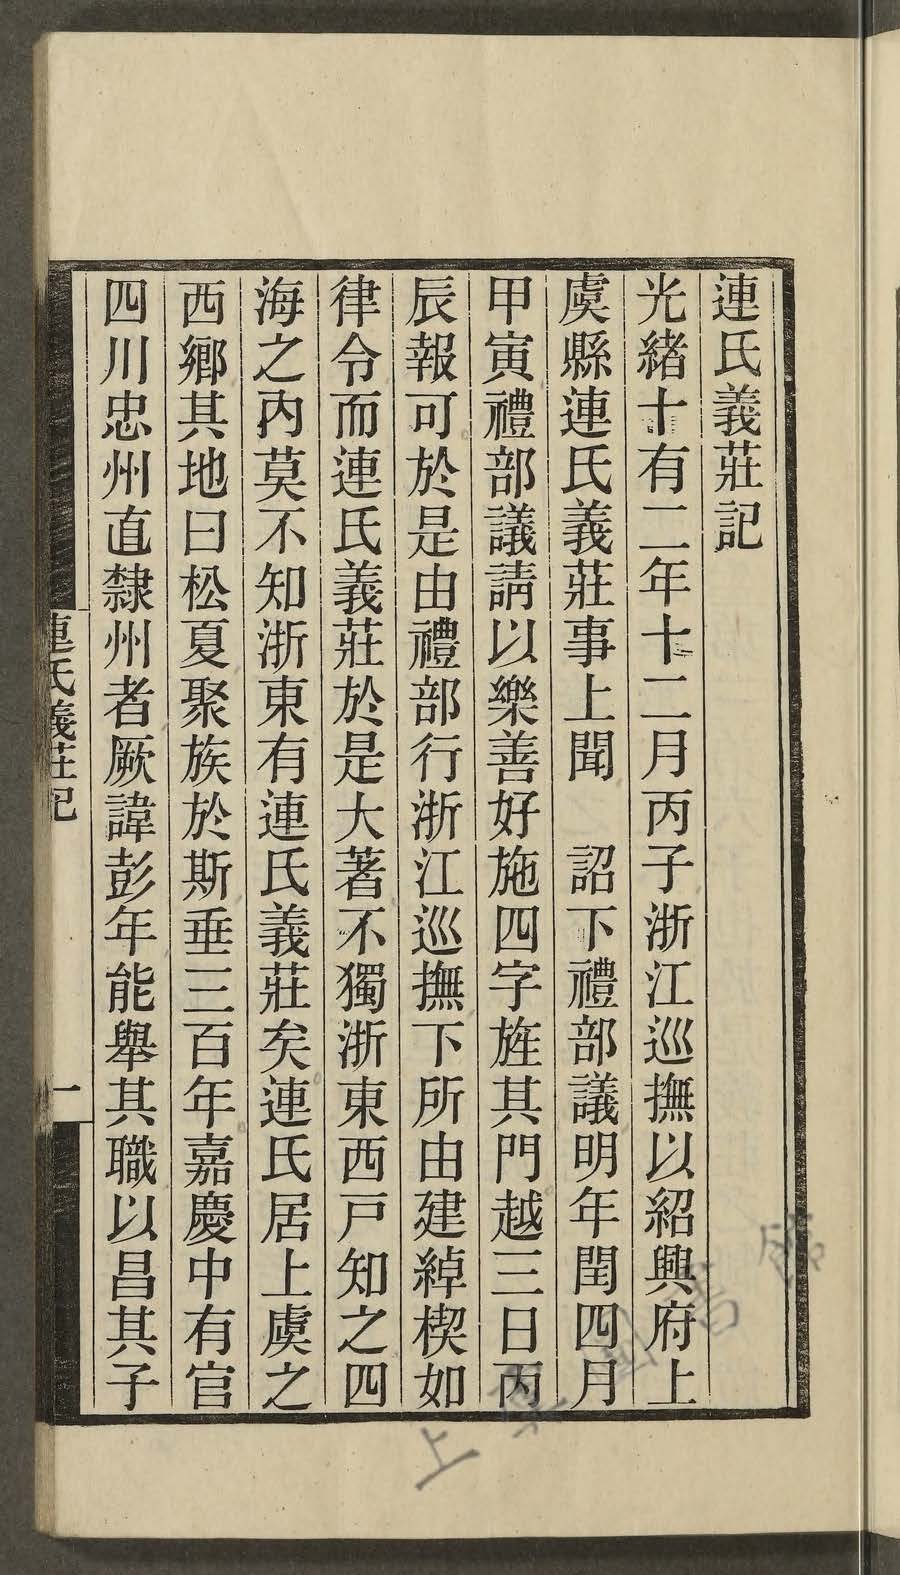 連氏義莊記
光緒十有二年十二月丙子浙江巡撫以紹興府上
虞縣連氏義莊事上聞　詔下禮部議明年閏四月
甲寅禮部議請以樂善好施四字旌其門越三日丙
辰報可於是由禮部行浙江巡撫下所由建綽楔如
律令而連氏義莊於是大著不獨浙東西戸知之四
海之內莫不知浙東有連氏義莊矣連氏居上虞之
西鄉其地曰松夏聚族於斯垂三百年嘉慶中有官
四川忠州直隸州者厥諱彭年能舉其職以昌其子
連氏義莊記
一
上海圖書館